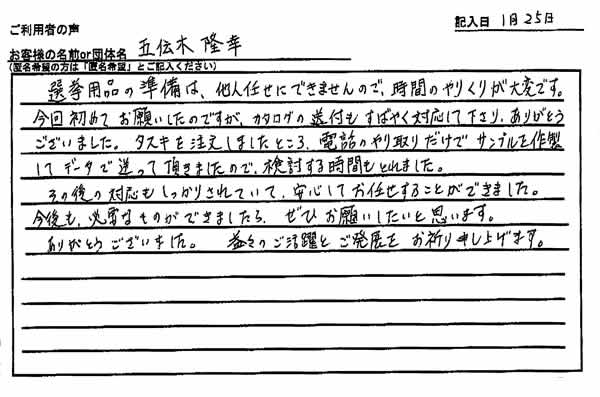 ご利用者の声
記入日 1月25日
お客様の名前or団体名 五伝木 隆幸
(匿名希望の方は「匿名希望」とご記入ください)
選挙用品の準備は、他人任せにできませんので、時間のやりくりが大変です。
今回初めてお願いしたのですが、カタログの送付もすばやく対応して下さり、ありがとう
ございました。タスキを注文しましたところ、電話のやり取りだけでサンプルを作製
してデータで送って頂きましたので、検討する時間もとれました。
その後の対応もしっかりされていて、安心してお任せすることができました。
今後も、必要なものができましたら、ぜひお願いしたいと思います。
ありがとうございました。 益々のご活躍とご発展をお祈り申し上げます。